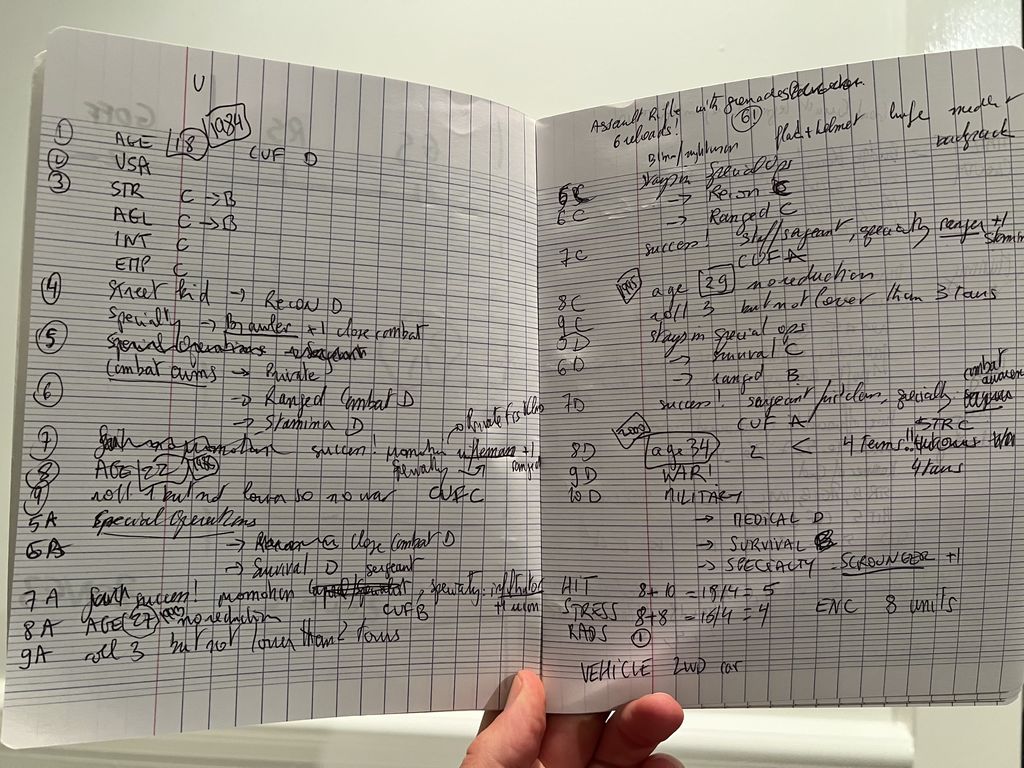 U
① AGE 18 1984
② USA CUF D
③ STR C → B
AGL C → B
INT C
EMP C
④ Street kid → Recon D
Specialty → Brawler +1 close combat
⑤ Special Operations
Combat arms → Private
⑥ → Ranged Combat D
→ Stamina D
⑦ success! promotion
specialty rifleman +1 ranged
⑧ AGE 22
⑨ roll 1 but not lower so no war CUF C
5A Special Operations
6B → close Combat D
→ Survival D sergeant
7A success! promotion specialty: infiltrator +1 recon
CUF B
8A AGE 27 no reduction
9A roll 3 but not lower than 2 terms
Assault Rifle with grenades
6 reloads!
flak + helmet knife medkit backpack
stays in special ops
6C → Recon C
→ Ranged C
7C success! Staff sergeant, specialty ranger +1 stamina
CUF A
8C 1995 age 29 no reduction
9C roll 3 but not lower than 3 terms
5D stays in special ops
6D → survival C
→ ranged B
7D success! sergeant first class, specialty combat awareness
CUF A
STR C
8D 2000 age 34 2 < 4 terms!!
4 terms
9D WAR!
10D MILITARY
→ MEDICAL D
→ SURVIVAL B
→ SPECIALTY SCROUNGER +1
HIT 8+10 = 18/4 = 5
STRESS 8+8 = 16/4 = 4 ENC 8 units
RADS ①
VEHICLE 2WD car